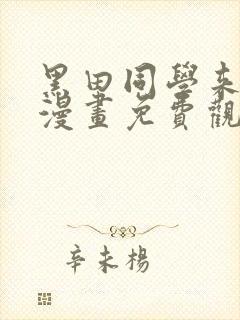 黑田同學來
漫畫免費觀
辛未楊